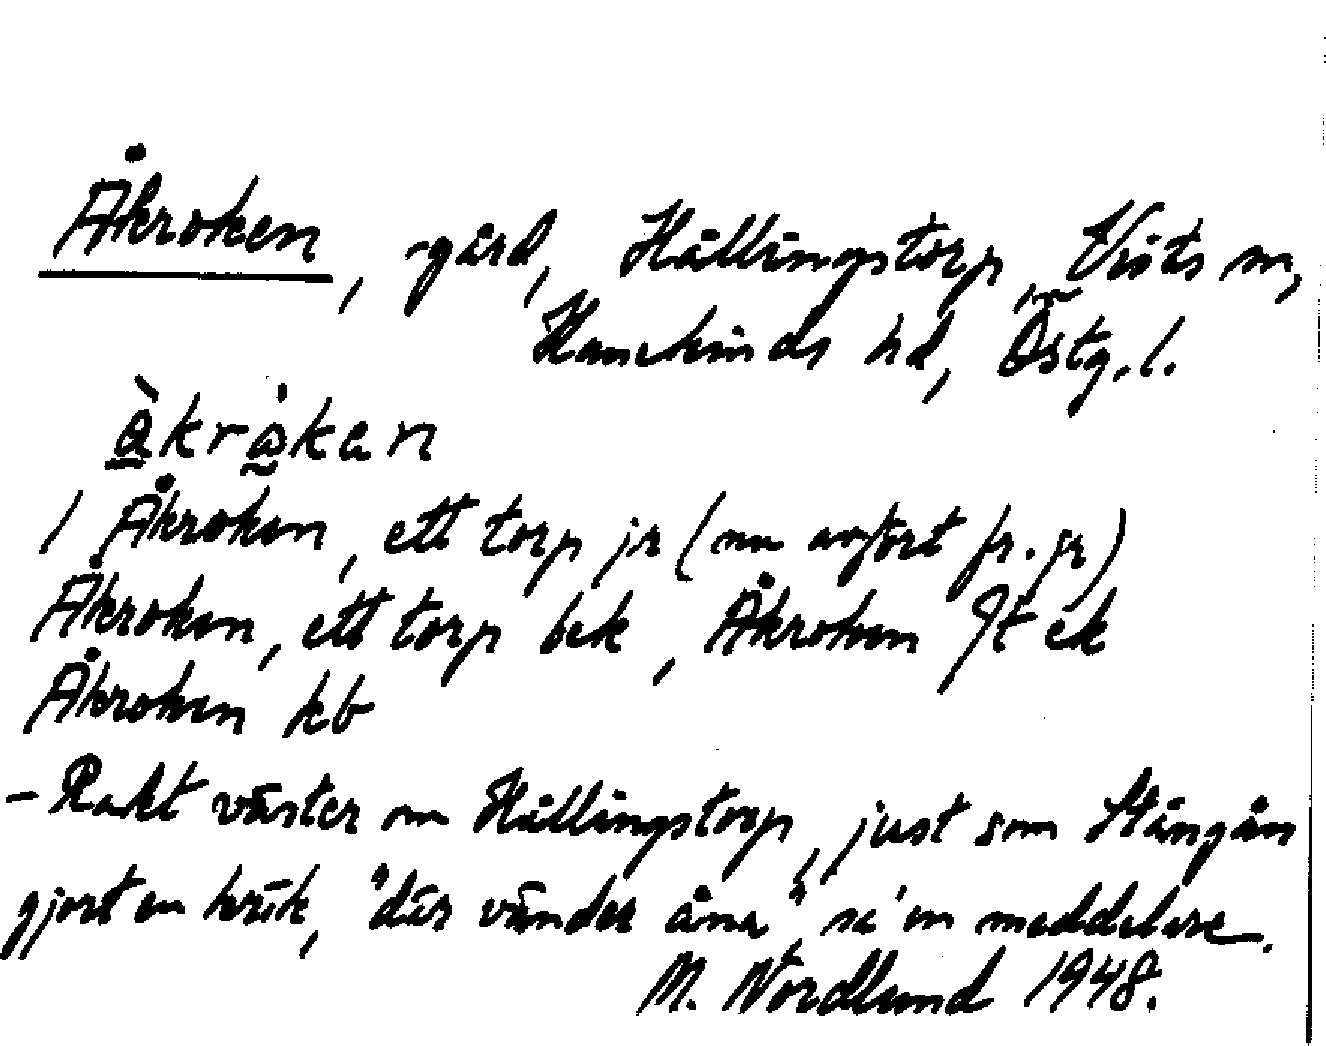 Åkroken, gård, Hållingstorp, Vists sn,
Hanekinds hd, Östg. l.
åkrok̀an
/ Åkroken, ett torp jr (nu avfört fr. jr)
Åkroken, ett torp bek, Åkroken /t ek
Åkroken kb
– Rakt väster om Hållingstorp, just som Stångån
gjort en krök, "där vänder åna", sa' en meddelare.
M. Nordlund 1948.